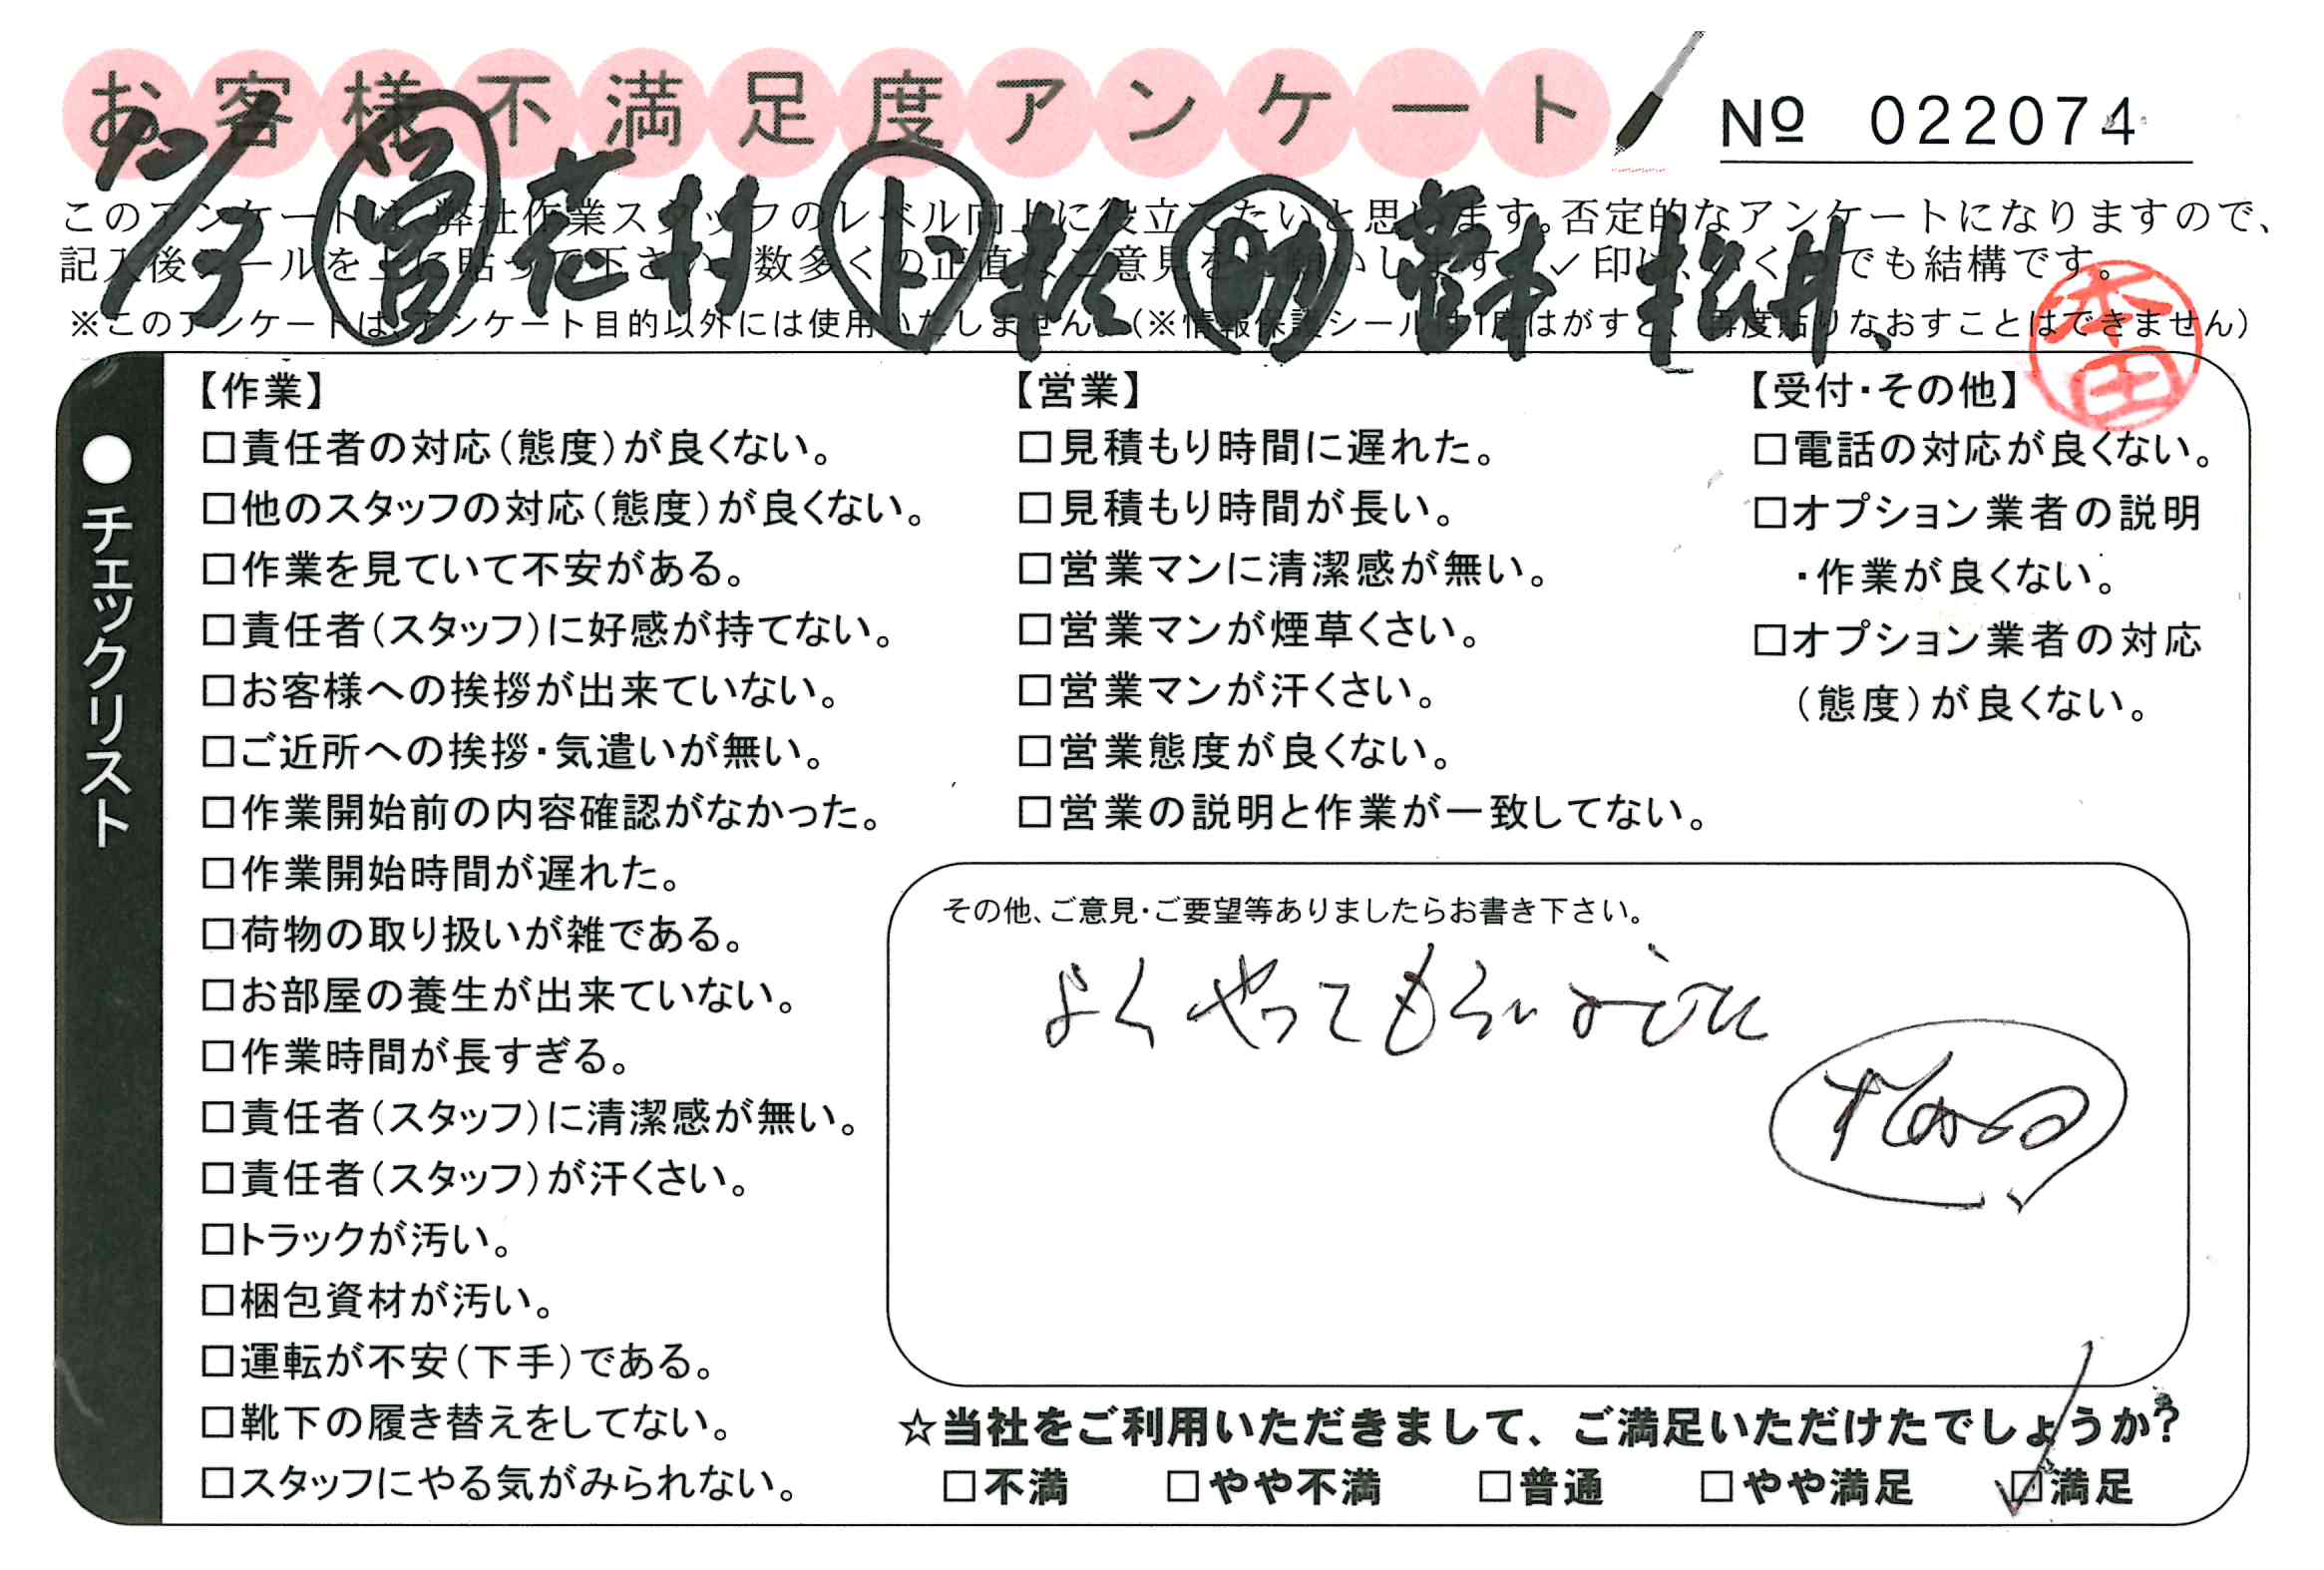 お客様不満足度アンケート
№ 022074
12/13 営 花村 ト 鈴 助 菅本 松井
このアンケートは、弊社作業スタッフのレベル向上に役立てたいと思います。否定的なアンケートになりますので、
記入後シールを上に貼って下さい。数多くの正直なご意見をお願いします。✓印は、いくつでも結構です。
※このアンケートは、アンケート目的以外には使用いたしません。(※情報保護シールは1度はがすと、再度貼りなおすことはできません)
本田
●チェックリスト
【作業】
□責任者の対応(態度)が良くない。
□他のスタッフの対応(態度)が良くない。
□作業を見ていて不安がある。
□責任者(スタッフ)に好感が持てない。
□お客様への挨拶が出来ていない。
□ご近所への挨拶・気遣いが無い。
□作業開始前の内容確認がなかった。
□作業開始時間が遅れた。
□荷物の取り扱いが雑である。
□お部屋の養生が出来ていない。
□作業時間が長すぎる。
□責任者(スタッフ)に清潔感が無い。
□責任者(スタッフ)が汗くさい。
□トラックが汚い。
□梱包資材が汚い。
□運転が不安(下手)である。
□靴下の履き替えをしてない。
□スタッフにやる気がみられない。
【営業】
□見積もり時間に遅れた。
□見積もり時間が長い。
□営業マンに清潔感が無い。
□営業マンが煙草くさい。
□営業マンが汗くさい。
□営業態度が良くない。
□営業の説明と作業が一致してない。
【受付・その他】
□電話の対応が良くない。
□オプション業者の説明
・作業が良くない。
□オプション業者の対応
(態度)が良くない。
その他、ご意見・ご要望等ありましたらお書き下さい。
よくやってもらいました
☆当社をご利用いただきまして、ご満足いただけたでしょうか?
□不満 □やや不満 □普通 □やや満足 ☑満足